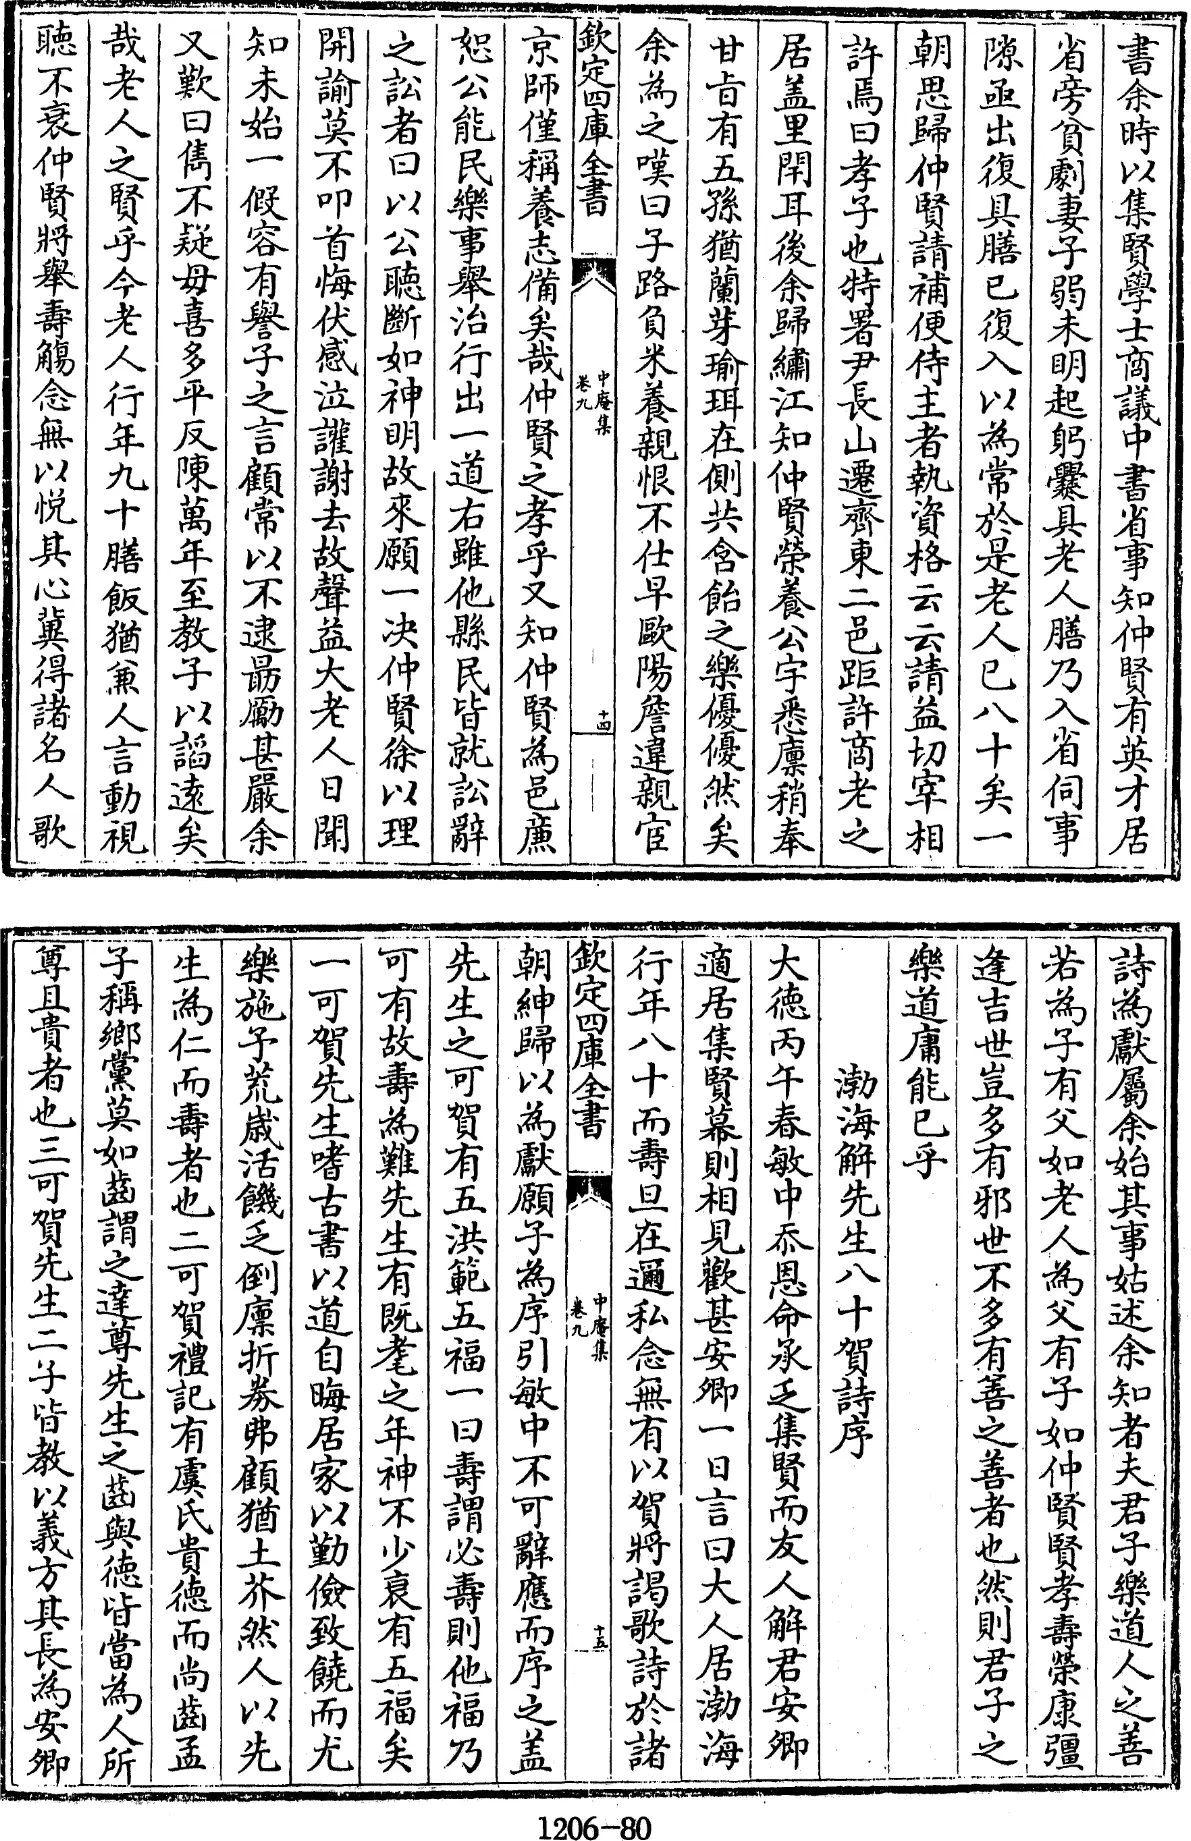 書余時以集賢學士商議中書省事知仲賢有英才居
省旁貧劇妻子弱未明起躬爨具老人膳乃入省伺事
隙亟出復具膳已復入以為常於是老人已八十矣一
朝思歸仲賢請補便侍主者執資格云云請益切宰相
許焉曰孝子也特署尹長山遷齊東二邑距許商老之
居盖里閈耳後余歸繡江知仲賢榮養公宇悉廪稍奉
甘旨有五孫猶蘭芽瑜珥在側共含飴之樂優優然矣
余為之嘆曰子路負米養親恨不仕早歐陽詹違親宦
欽定四庫全書
中庵集
卷九
十四
京師僅稱養志備矣哉仲賢之孝乎又知仲賢為邑廉
恕公能民樂事舉治行出一道右雖他縣民皆就訟辭
之訟者曰以公聽斷如神明故來願一决仲賢徐以理
開諭莫不叩首悔伏感泣讙謝去故聲益大老人日聞
知未始一假容有譽子之言顧常以不逮勗勵甚嚴余
又歎曰雋不疑母喜多平反陳萬年至教子以謟逺矣
哉老人之賢乎今老人行年九十膳飯猶兼人言動視
聽不衰仲賢將舉壽觴念無以悅其心冀得諸名人歌
詩為獻屬余始其事姑述余知者夫君子樂道人之善
若為子有父如老人為父有子如仲賢賢孝壽榮康彊
逢吉世豈多有邪世不多有善之善者也然則君子之
樂道庸能已乎
渤海解先生八十賀詩序
大徳丙午春敏中忝恩命承乏集賢而友人解君安卿
適居集賢幕則相見歡甚安卿一日言曰大人居渤海
行年八十而壽旦在邇私念無有以賀將謁歌詩於諸
欽定四庫全書
中庵集
卷九
十五
朝紳歸以為獻願子為序引敏中不可辭應而序之盖
先生之可賀有五洪範五福一曰壽謂必壽則他福乃
可有故壽為難先生有既耄之年神不少衰有五福矣
一可賀先生嗜古書以道自晦居家以勤儉致饒而尤
樂施予荒嵗活饑乏倒廪折劵弗顧猶土芥然人以先
生為仁而壽者也二可賀禮記有虞氏貴徳而尚齒孟
子稱鄉黨莫如齒謂之達尊先生之齒與徳皆當為人所
尊且貴者也三可賀先生二子皆教以義方其長為安卿
1206-80